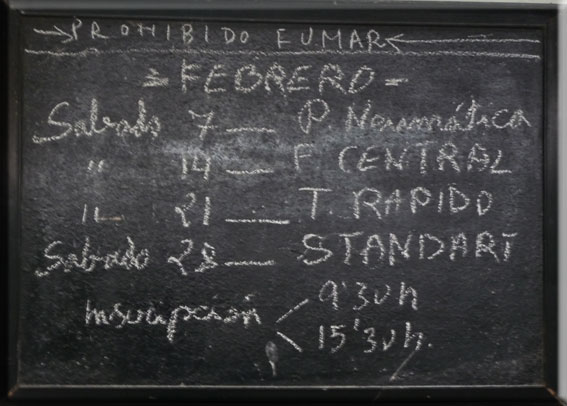 PROHIBIDO FUMAR
= FEBRERO =
Sabado 7 — P. Neumática
" 14 — F. CENTRAL
" 21 — T. RAPIDO
Sabado 28 — STANDART
Inscripción 9'30h
15'30h.